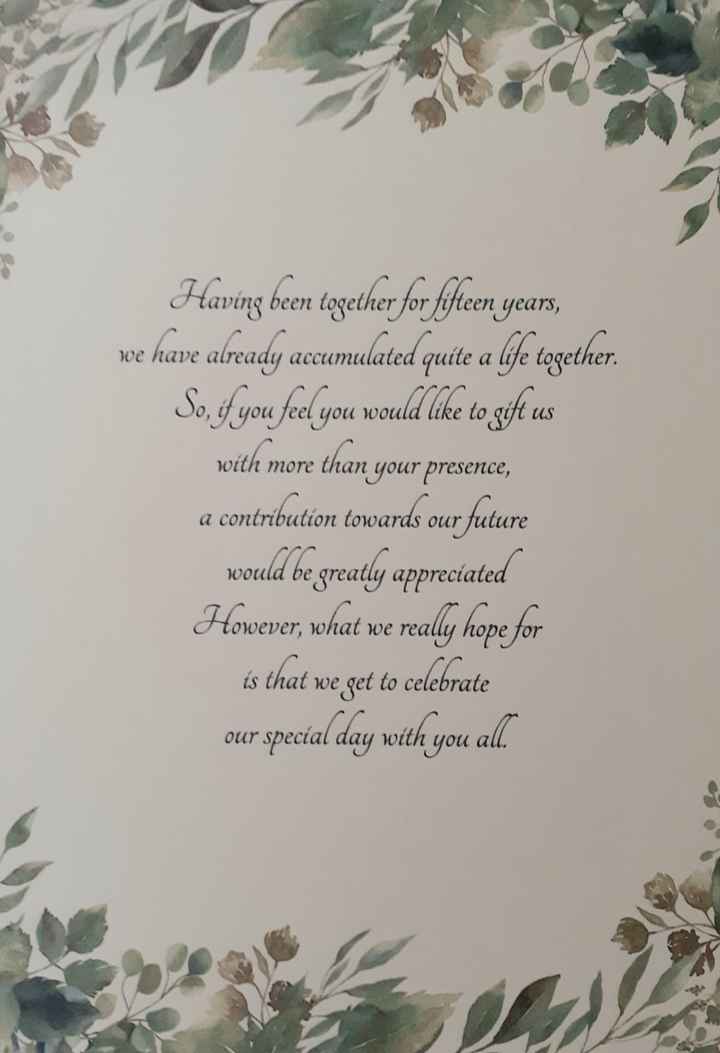 Having been together for fifteen years,
we have already accumulated quite a life together.
So, if you feel you would like to gift us
with more than your presence,
a contribution towards our future
would be greatly appreciated
However, what we really hope for
is that we get to celebrate
our special day with you all.